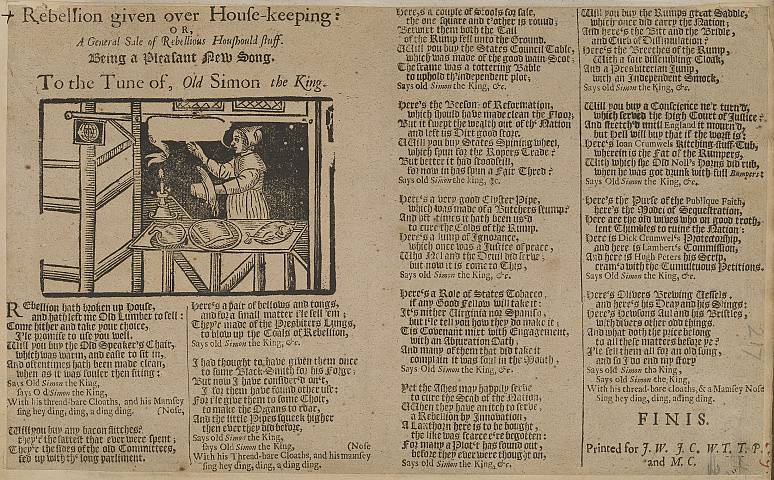 Rebellion given over House-keeping:
OR,
A General Sale of Rebellious Houshould stuff.
Being a Pleasant New Song.
To the Tune of, Old Simon the King.
REbellion hath broken up House,
and hath left me Old Lumber to sell:
Come hither and take your choice,
I'le promise to use you well.
Will you buy the Old Speaker's Chair,
which was warm, and easie to sit in,
And oftentimes hath been made clean,
when as it was fouler then fitting:
Says Old Simon the King,
says Old Simon the King,
With his thread-bare Cloaths, and his Mamsey
sing hey ding, ding, a ding ding. (Nose,
Will you buy any bacon flitches?
they'r the fattest that ever were spent;
They'r the sides of the old Committees,
fed up with the long parliment.
Here's a pair of bellows and tongs,
and for a small matter i'le sell 'em;
They'r made of the Presbiters Lungs,
to blow up the Coals of Rebellion,
Says old Simon the King, &c.
I had thought to have given them once
to some Black-Smith for his Forge;
But now I have consider'd on't,
For I'le give them to some Choir,
to make the Organs to roar,
And the little Pipes squeek higher
then ever they did before,
Says old Simon the King,
says Old Simon the King, (Nose
With his Thread-bare Cloaths, and his mamsey
sing hey ding, ding, a ding ding.
Here's a couple of stools for sale,
the one square and t'other is round;
Betwixt them both the Tail
of the Rump fell unto the Ground.
Will you buy the States Council Table,
which was made of the good wain-Scot
The frame was a tottering Bable
to uphold th'independent plot,
Says old Simon the King, &c.
Here's the Beesom of Reformation,
which should have made clean the Floor,
But it swept the wealth out of th' Nation
and left us Dirt good store.
Will you buy the States Spinning wheel,
which spun for the Ropers Trade?
But better it had stood still,
for now it has spun a Fair Thred?
Says old Simon the king, &c.
Here's a very good Clyster Pipe,
which was made of a Butchers stump?
And oft times it hath been us'd
to cure the Colds of the Rump.
Here's a lump of Ignorance,
which once was a Justice of peace,
Who Nol and the Devil did serve;
but now it is come to This,
Says old Simon the King, &c.
Here's a Role of States Tobacco,
if any Good Fellow will take it:
It's nither Virginia nor Spanish,
but i'le tell you how they do make it;
Tis Covenant mixt with Engagement,
with an Abjuration Oath;
And many of them that did take it
complain it was foul in the Mouth,
Says old Simon the King, &c.
Yet the Ashes may happily serve
to cure the Scab of the Nation,
When they have an itch to serve,
a Rebellion by Innovation,
A Lanthorn here is to be bought,
the like was scarce e're begotten:
For many a Plot 't has found out,
before they ever were thought on,
Says old Simon the King, &c.
Will you buy the Rumps great Saddle,
which once did carry the Nation;
And here's the Bitt and the Bridle,
and Curb of Dissimulation?
Here's the Breeches of the Rump,
With a fair dissembling Cloak,
And a Presbiterian Jump,
with an Independent Smock,
Says old Simon the King, &c.
Will you buy a Conscience ne'r turn'd,
which served the High Court of Justice?
And stretch'd until England it mourn'd,
but Hell will buy that if the worst is?
Here's Ioan Crumwel's Kitching-stuff-Tub,
wherein is the Fat of the Rumpers,
With which she Old Noll's Horns did rub,
when he was got drunk with full Bumpers:
Says Old Simon the King, &c.
Here's the Purse of the Publique Faith,
here's the Model of Sequestration,
Here are the old wives who on good troth,
lent Thimbles to ruine the Nation:
Here is Dick Crumwel's Protectorship,
and here is Lambert's Commission,
And here is Hugh Peters his Scrip,
cram'd with the Tumultuous Petitions.
Says old Simon the King, &c.
Here's Olivers Brewing Vessels,
and here's his Dray and his Slings:
Here's Hewsons Aul and his Bristles,
with divers other odd things.
And what doth the price belong
to all these matters before ye?
I'le sell them all for an old song,
and so I do end my story
Says old Simon the King,
Says old Simon the King,
With his thread-bare Cloaths, & a Mamsey Nose
Sing hey ding, ding, a ding ding.
FINIS.
Printed for J. W. J. C. W. T. T. P.
and M. C.
217